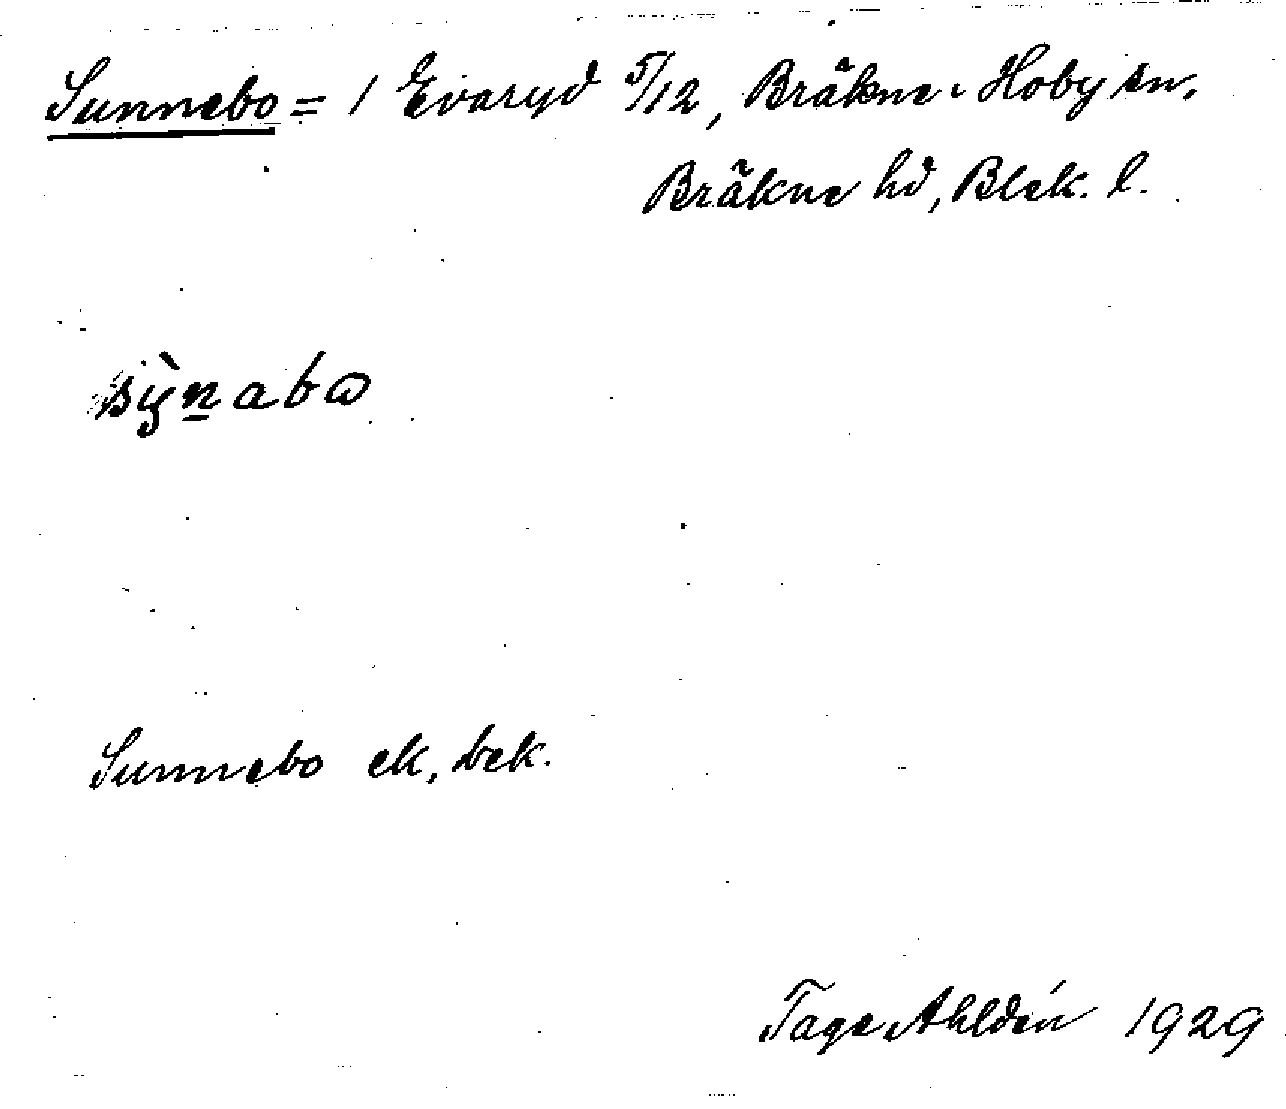 Sunnebo = 1 Evaryd 5/12, Bräkne-Hoby sn,
Bräkne hd, Blek. l.
sỳnabɷ
Sunnebo ek, bek.
Tage Ahldén 1929